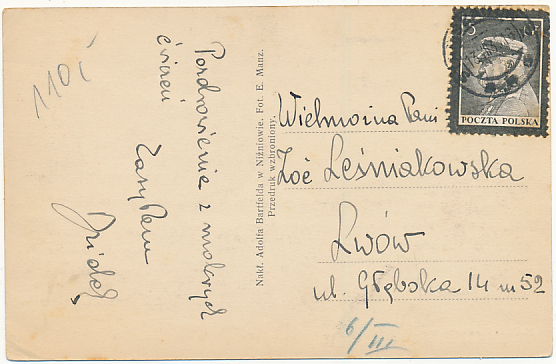 110
Pozdrowienia z
ćwiczeń
Zasyłam
Nakł. Adolfa Bartfelda w Niżniowie. Fot. E. Manz.
Przedruk wzbroniony.
5
POCZTA POLSKA
Wielmożna Pani
Zoć Leśniakowska
Lwów
ul. Głęboka 14 m 52
6/III